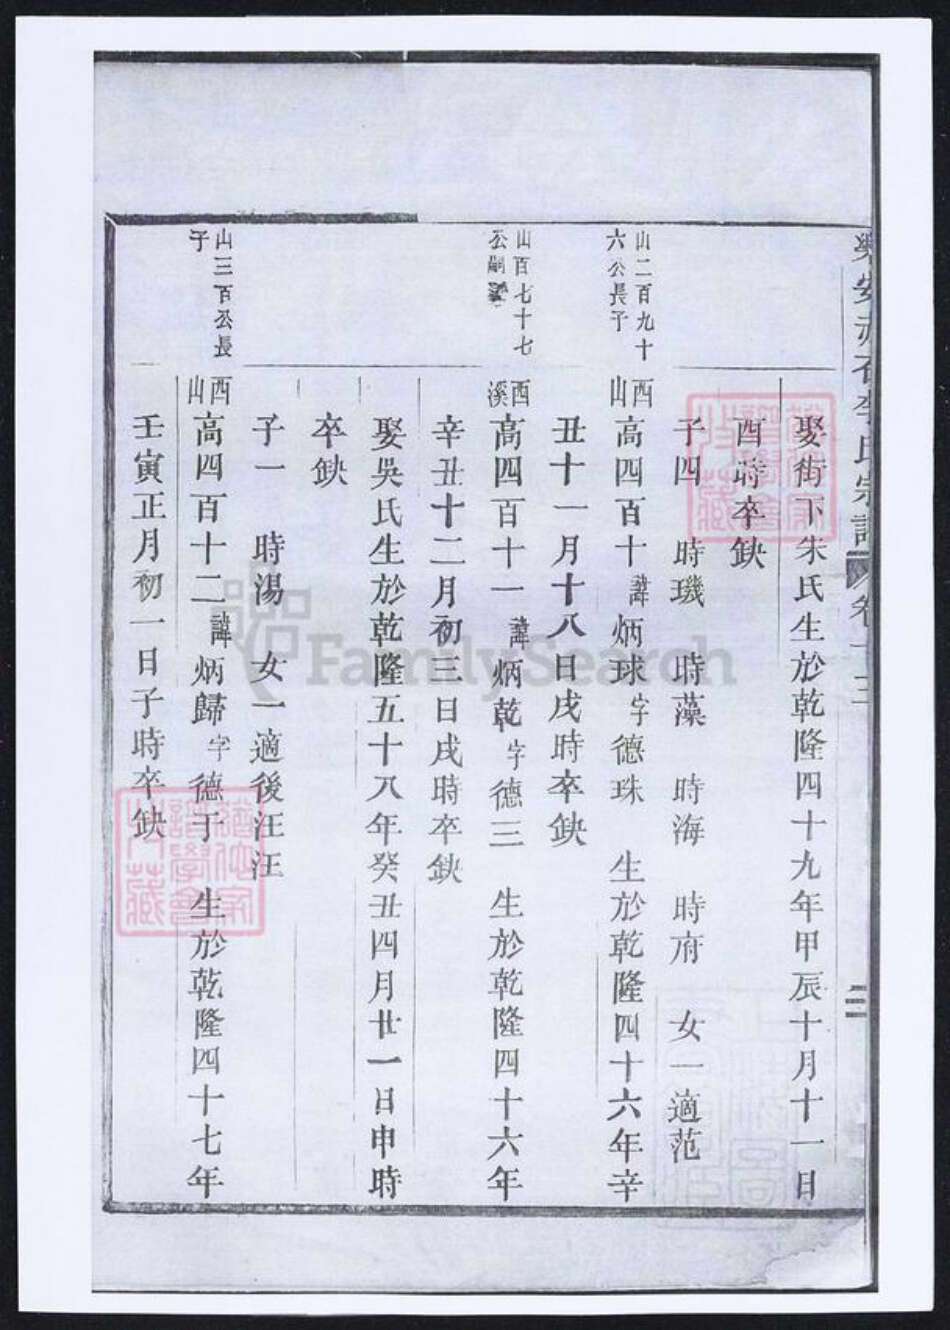 樂安赤石李氏宗譜 卷十三
娶街下朱氏生於乾隆四十九年甲辰十月十一日
酉時卒缺
子四 時璣 時藻 時海 時府 女一適范
山二百九十六公長子
西山高四百十諱炳球字德珠 生於乾隆四十六年辛
丑十一月十八日戌時卒缺
山百七十七公嗣
西溪高四百十一諱炳乾字德三 生於乾隆四十六年
辛丑十二月初三日戌時卒缺
娶吳氏生於乾隆五十八年癸丑四月廿一日申時
卒缺
子一 時湯 女一適後汪汪
山三百公長子
西山高四百十二諱炳歸字德于 生於乾隆四十七年
壬寅正月初一日子時卒缺
FamilySearch